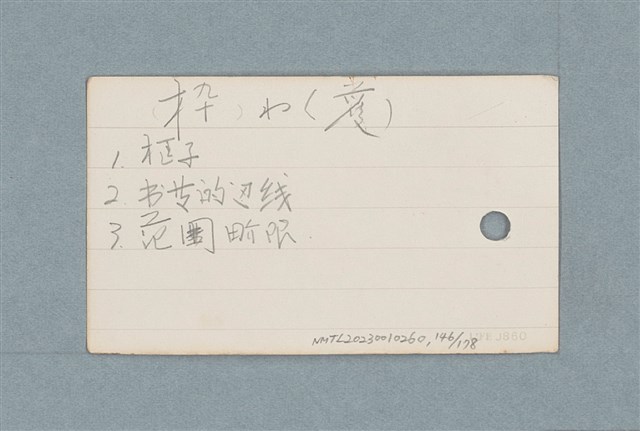 (枠) わ(蒦)
1. 框子
2. 书皮的边线
3. 范围畍限.
NMTL20230010260, 146/178